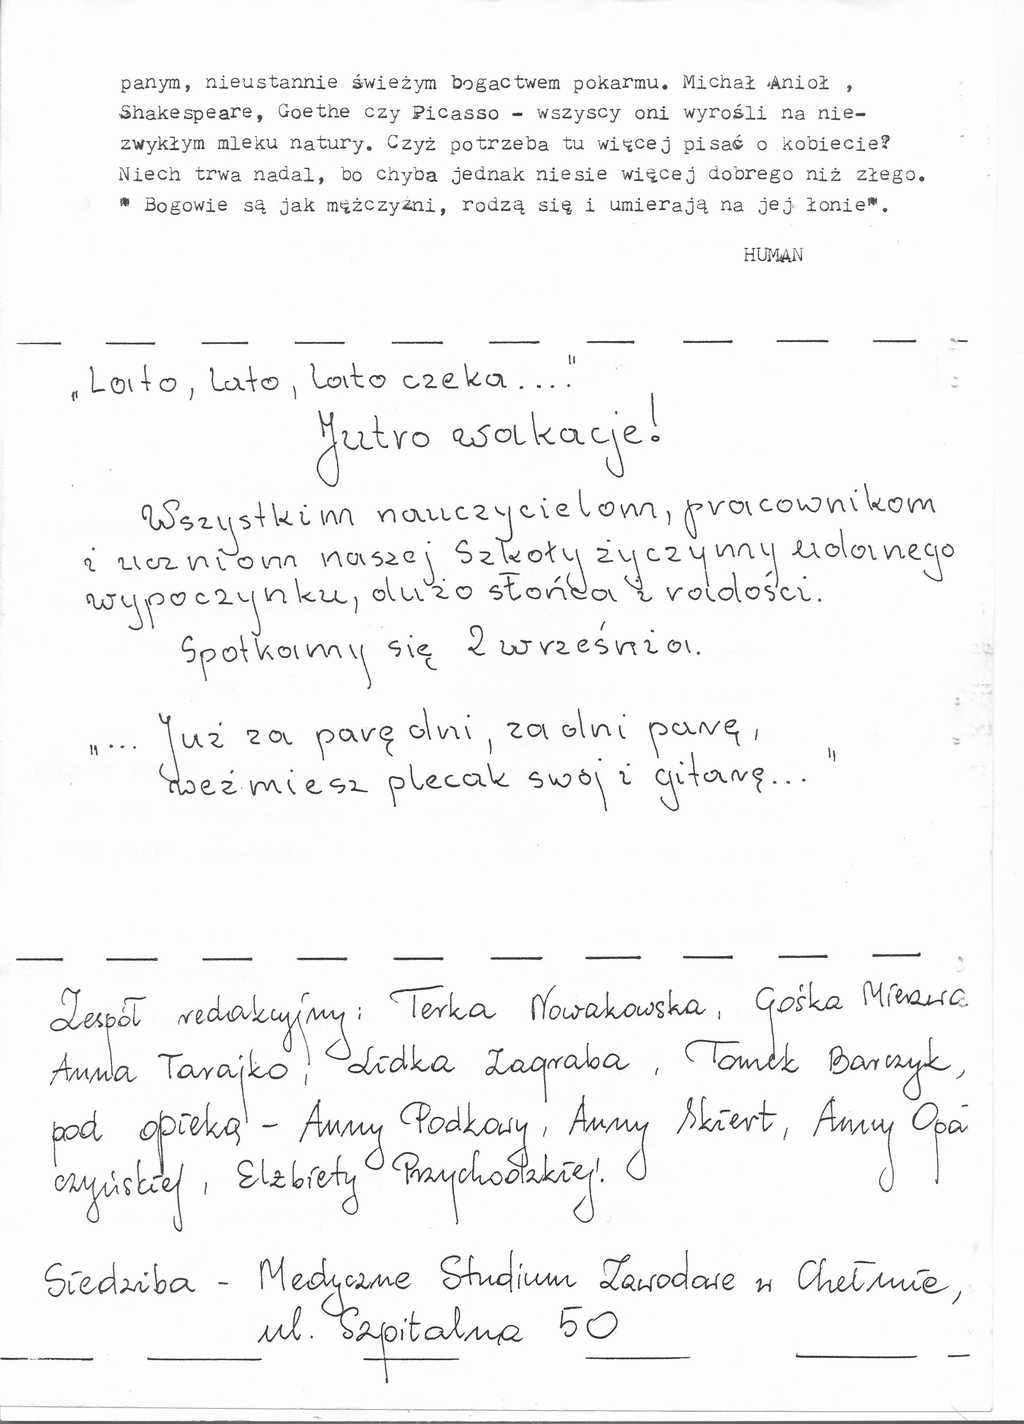 panym, nieustannie świeżym bogactwem pokarmu. Michał Anioł ,
Shakespeare, Goethe czy Picasso - wszyscy oni wyrośli na nie-
zwykłym mleku natury. Czyż potrzeba tu więcej pisać o kobiecie?
Niech trwa nadal, bo chyba jednak niesie więcej dobrego niż złego.
" Bogowie są jak mężczyźni, rodzą się i umierają na jej łonie".
HUMAN
„Lato, lato, lato czeka...."
Jutro wakacje!
Wszystkim nauczycielom, pracownikom
i uczniom naszej Szkoły życzymy udanego
wypoczynku, dużo słońca i radości.
Spotkamy się 2 września.
„... Już za parę dni, za dni parę,
weźmiesz plecak swój i gitarę... "
Zespół redakcyjny: Terka Nowakowska, Gośka
Anna Tarajko, Lidka Zagraba, Tomek Barczyk,
pod opieką - Anny Podkowy, Anny Skiert, Anny Opa
czyńskiej, Elżbiety Przychodzkiej.
Siedziba - Medyczne Studium Zawodowe w Chełmie,
ul. Szpitalna 50